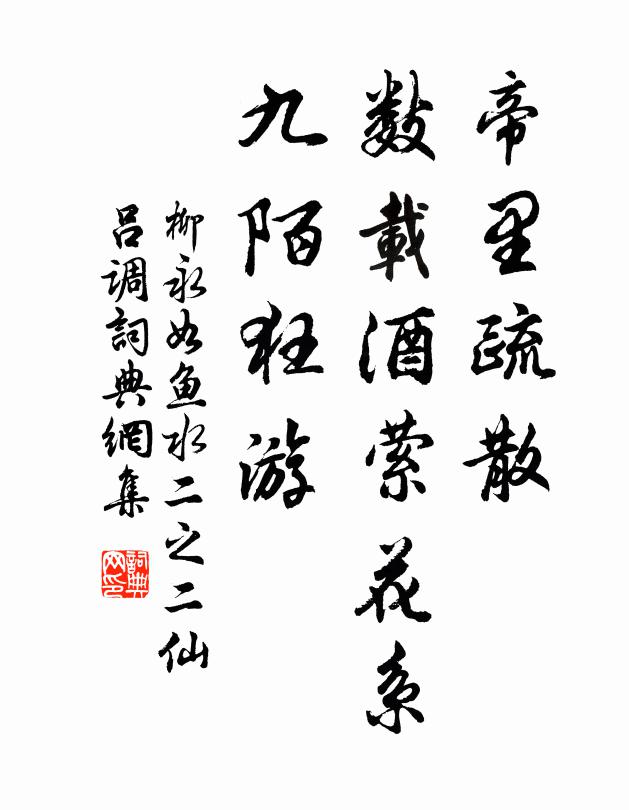 帝里疏散
数載酒萦花系
九陌狂游
柳永如鱼水二之二仙
吕调詞典網集
詞典
网印